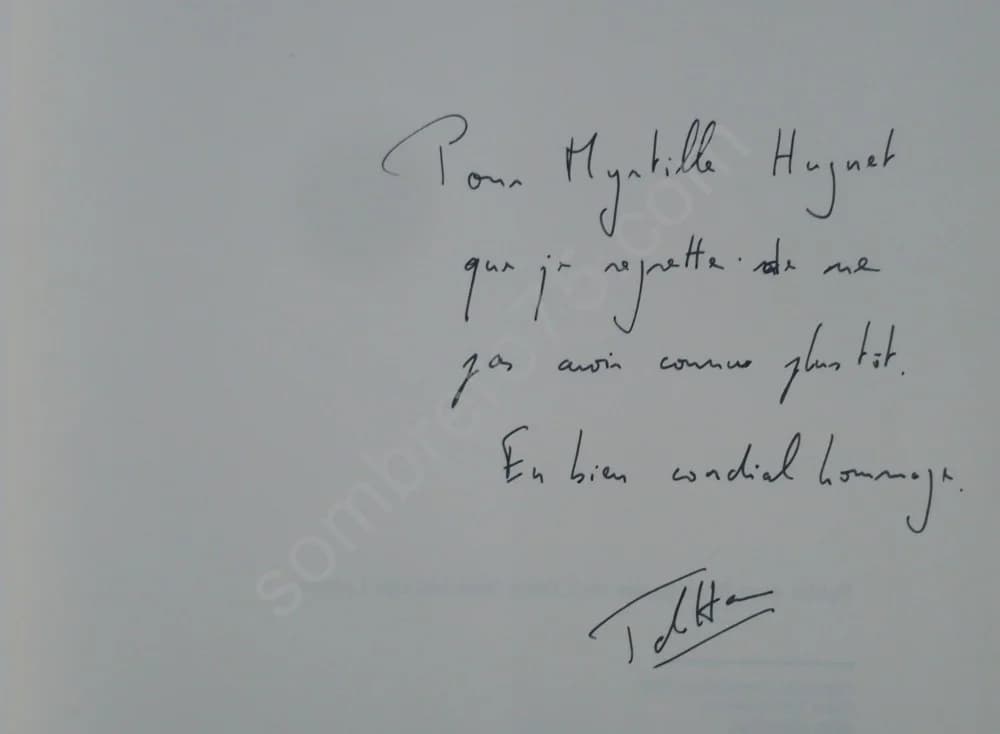 Pour Myrtille Hugnet
que je regrette de ne
pas avoir connue plus tôt.
En bien cordial hommage.
TdHa
sombrero75.com